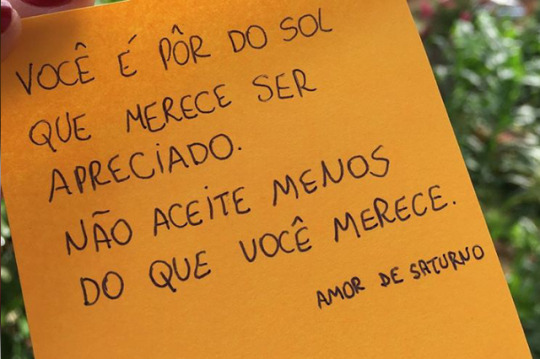 VOCÊ É PÔR DO SOL
QUE MERECE SER
APRECIADO.
NÃO ACEITE MENOS
DO QUE VOCÊ MERECE.
AMOR DE SATURNO